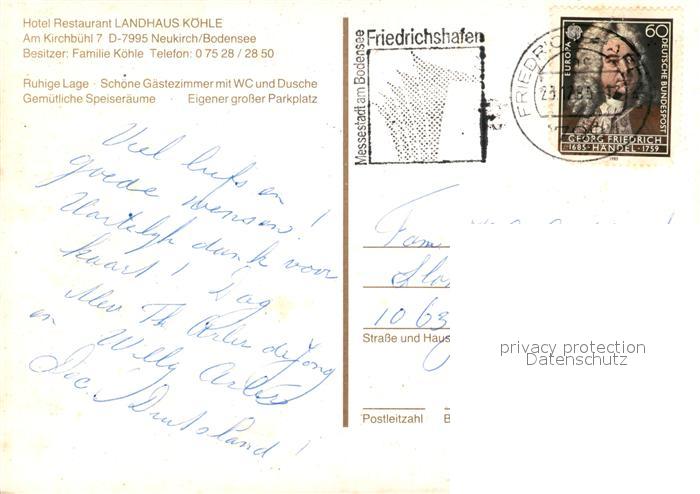 Hotel Restaurant LANDHAUS KÖHLE
Am Kirchbühl 7 D-7995 Neukirch/Bodensee
Besitzer: Familie Köhle Telefon: 0 75 28 / 28 50
Ruhige Lage · Schöne Gästezimmer mit WC und Dusche
Gemütliche Speiseräume · Eigener großer Parkplatz
Viel liefs en
goede wensen!
Hartelijk dank voor
kaart! Dag
Mev. Th de Jong
en Willy
Duitsland!
Messestadt am Bodensee
Friedrichshafen
FRIEDRICH
60
EUROPA
DEUTSCHE BUNDESPOST
GEORG FRIEDRICH
1685 · HÄNDEL · 1759
1985
Fam
1063
Straße und Haus
Postleitzahl
privacy protection
Datenschutz